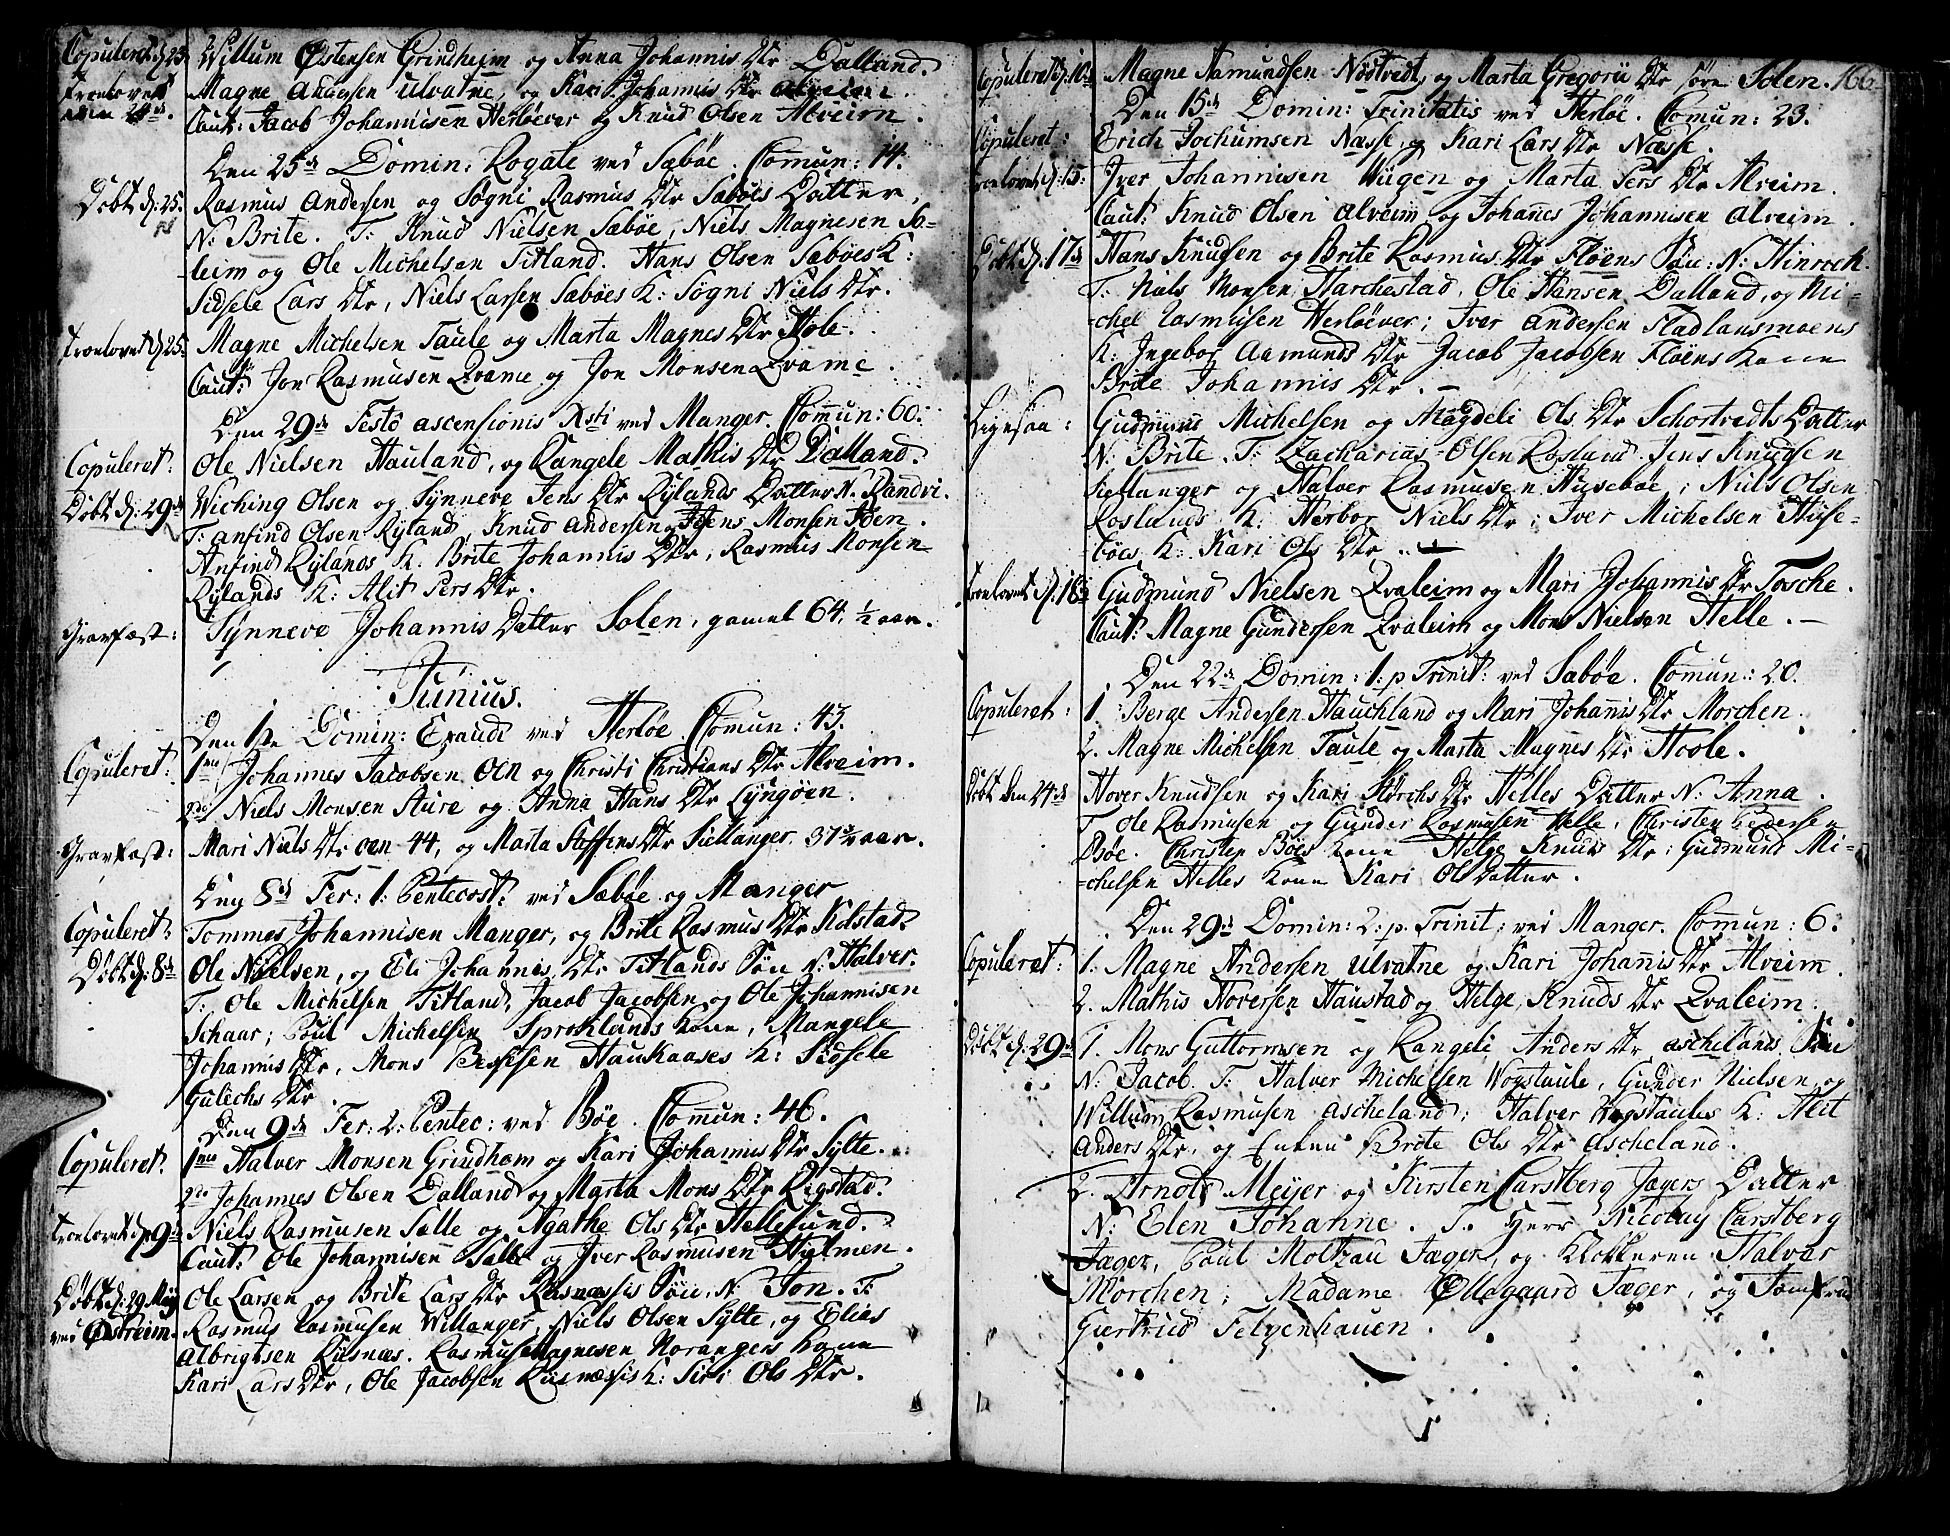 Copuleret d. 23. Willum Østensen Grindheim og Anna Johannis Dtr Dalland.
Troelovet Magne Andersen Ulvatne, og Kari Johannis Dtr Alveim.
eodem 24de. Caut: Jacob Johannisen Herløever og Knud Olsen Alveim.
Den 25de Domin: Rogate ved Sæbøe. Comun: 14.
Døbt d: 25. Rasmus Andersen og Søgni Rasmus Dtr Sæbøes Datter,
N: Brite. T: Knud Nielsen Sæbøe, Niels Magnesen So-
leim og Ole Michelsen Titland. Hans Olsen Sæbøes K:
Sidsele Lars Dtr, Niels Larsen Sæbøes K: Søgni Niels Dtr.
Troelovet d. 25. Magne Michelsen Taule og Marta Magnes Dtr Hole.
Caut: Jon Rasmusen Qvame og Jon Monsen Qvame.
Den 29de Festo ascensionis Xsti ved Manger. Comun: 60.
Copuleret: Ole Nielsen Hauland, og Rangele Mathis Dtr Dalland.
Døbt d: 29de Wiching Olsen og Synneve Jens Dtr Rylands Datter N: Randvi.
T: Anfind Olsen Ryland, Knud Andersen og Jens Monsen Toen.
Anfind Rylands K. Brite Johannis Dtr, Rasmus Monsen
Rylands K: Alit Pers Dtr.
Gravfæst: Synneve Johannis Datter Solen, gamel 64 1/2 aar.
Junius.
Den 1ste Domin: Exaudi ved Herløe. Comun: 43.
Copuleret: 1mo Johannes Jacobsen Oen og Christi Christians Dtr Alveim.
2do Niels Monsen Aure og Anna Hans Dtr Lyngøen.
Gravfæst: Mari Niels Dtr Oen 44, og Marta Steffens Dtr Kiellanger. 37 1/2 aar.
Den 8de Fer: 1. Pentecost: ved Sæbøe og Manger
Copuleret: Tommes Johannisen Manger, og Brite Rasmus Dtr Kilstad.
Døbt d: 8de Ole Nielsen, og Eli Johannis Dtr Titlands Søn N: Halver.
T: Ole Michelsen Titland, Jacob Jacobsen og Ole Johannisen
Schaar; Poul Michelsen Sproklands Kone, Mangele
Johannis Dtr, Mons Bertsen Haukaases K: Sidsele
Gulichs Dtr
Den 9de Fer: 2. Pentec: ved Bøe. Comun: 46.
Copuleret. 1mo Halver Monsen Grindhem og Kari Johannis Dtr Sylte.
2do Johannes Olsen Dalland og Marta Mons Dtr Rigstad.
Troelovet d. 9de Niels Rasmusen Sælle og Agathe Ols Dtr Hellesund.
Caut: Ole Johannisen Sælle og Iver Rasmusen Hielmen.
Døbt d. 29 Maij Ole Larsen og Brite Lars Dtr Risnæssis Søn, N: Jon. T:
ved Østreim. Rasmus Rasmusen Willanger, Niels Olsen Sylte, og Elias
Albrigtsen Riisnæs. Rasmus Magnesen Norangers Kone
Kari Lars Dtr, Ole Jacobsen Riisnæssis K: Siri Ols Dtr.
166
Copuleret d. 10 Magne Aamundsen Nøstvedt, og Marta Gregorii Dtr søre Solen.
Den 15de Domin: Trinitatis ved Herløe. Comun: 23.
Copuleret: Erich Jochumsen Næsse, og Kari Lars Dtr Næsse.
Troelovet d: 15: Iver Johannisen Hiigen og Marta Pers Dtr Alveim.
Caut: Knud Olsen Alveim og Johanes Johannisen Alveim.
Døbt d. 17de Hans Knudsen og Brite Rasmus Dtr Fløens Søn: N: Hinrech.
T: Niels Monsen Harchestad, Ole Hansen Dalland, og Mi-
-chel Rasmusen Herløever; Iver Andersen Fladlansmoens
K: Ingebor Aamunds Dtr Jacob Jacobsen Fløens Kone
Brite Johannis Dtr.
Ligesaa: Gudmund Michelsen og Magdeli Ols Dtr Schortvedts Datter
N: Brite. T: Zacharias Olsen Roslund, Jens Knudsen
Kiellanger og Halver Rasmusen Husebøe; Niels Olsen
Roslunds K: Herbor Niels Dtr; Iver Michelsen Huse-
-bøes K: Kari Ols Dtr
Troelovet d. 18de Gudmund Nielsen Qvaleim og Mari Johannis Dtr Tosche.
Caut: Magne Gundersen Qvaleim og Mons Nielsen Helle.
Den 22de Domin: 1: p Trinit: ved Sæbøe. Comun: 20.
Copuleret: 1. Berge Andersen Hauchland og Mari Johannis Dtr Morchen.
2. Magne Michelsen Taule og Marta Magnes Dtr Hoole.
Døbt den 24de Hover Knudsen og Kari Størchs Dtr Helles Datter N: Anna.
T Ole Rasmusen og Gunder Rasmusen Helle, Christen Pedersen
Bøe. Christen Bøes Kone Helge Knuds Dtr; Gudmund Mi-
-chelsen Helles Kone Kari Ols Datter.
Den 29de Domin: 2: p. Trinit: ved Manger. Comun: 6.
Copuleret: 1. Magne Andersen Ulvatne og Kari Johannis Dtr Alveim.
2. Mathis Noversen Haustad og Helge Knuds Dtr Qvaleim.
Døbt d: 29de 1. Mons Guttormsen og Rangeli Anders Dtr Aschelands Søn
N: Jacob. T: Halver Michelsen Wogstaule, Gunder Nielsen og
Willum Rasmusen Ascheland; Halver Wogstaules K: Alit
Anders Dtr, og Enken Brite Ols Dtr Ascheland.
2. Arnold Meijer og Kirsten Carstberg Jægers Datter
N: Elen Johanne. T. Herr Nicolay Carstberg
Jæger, Poul Moltzau Jæger, og Klokkeren Halvar
Morchen; Madame Øllegaard Jæger, og Jomfrue
Giertrud Felgenhauen.